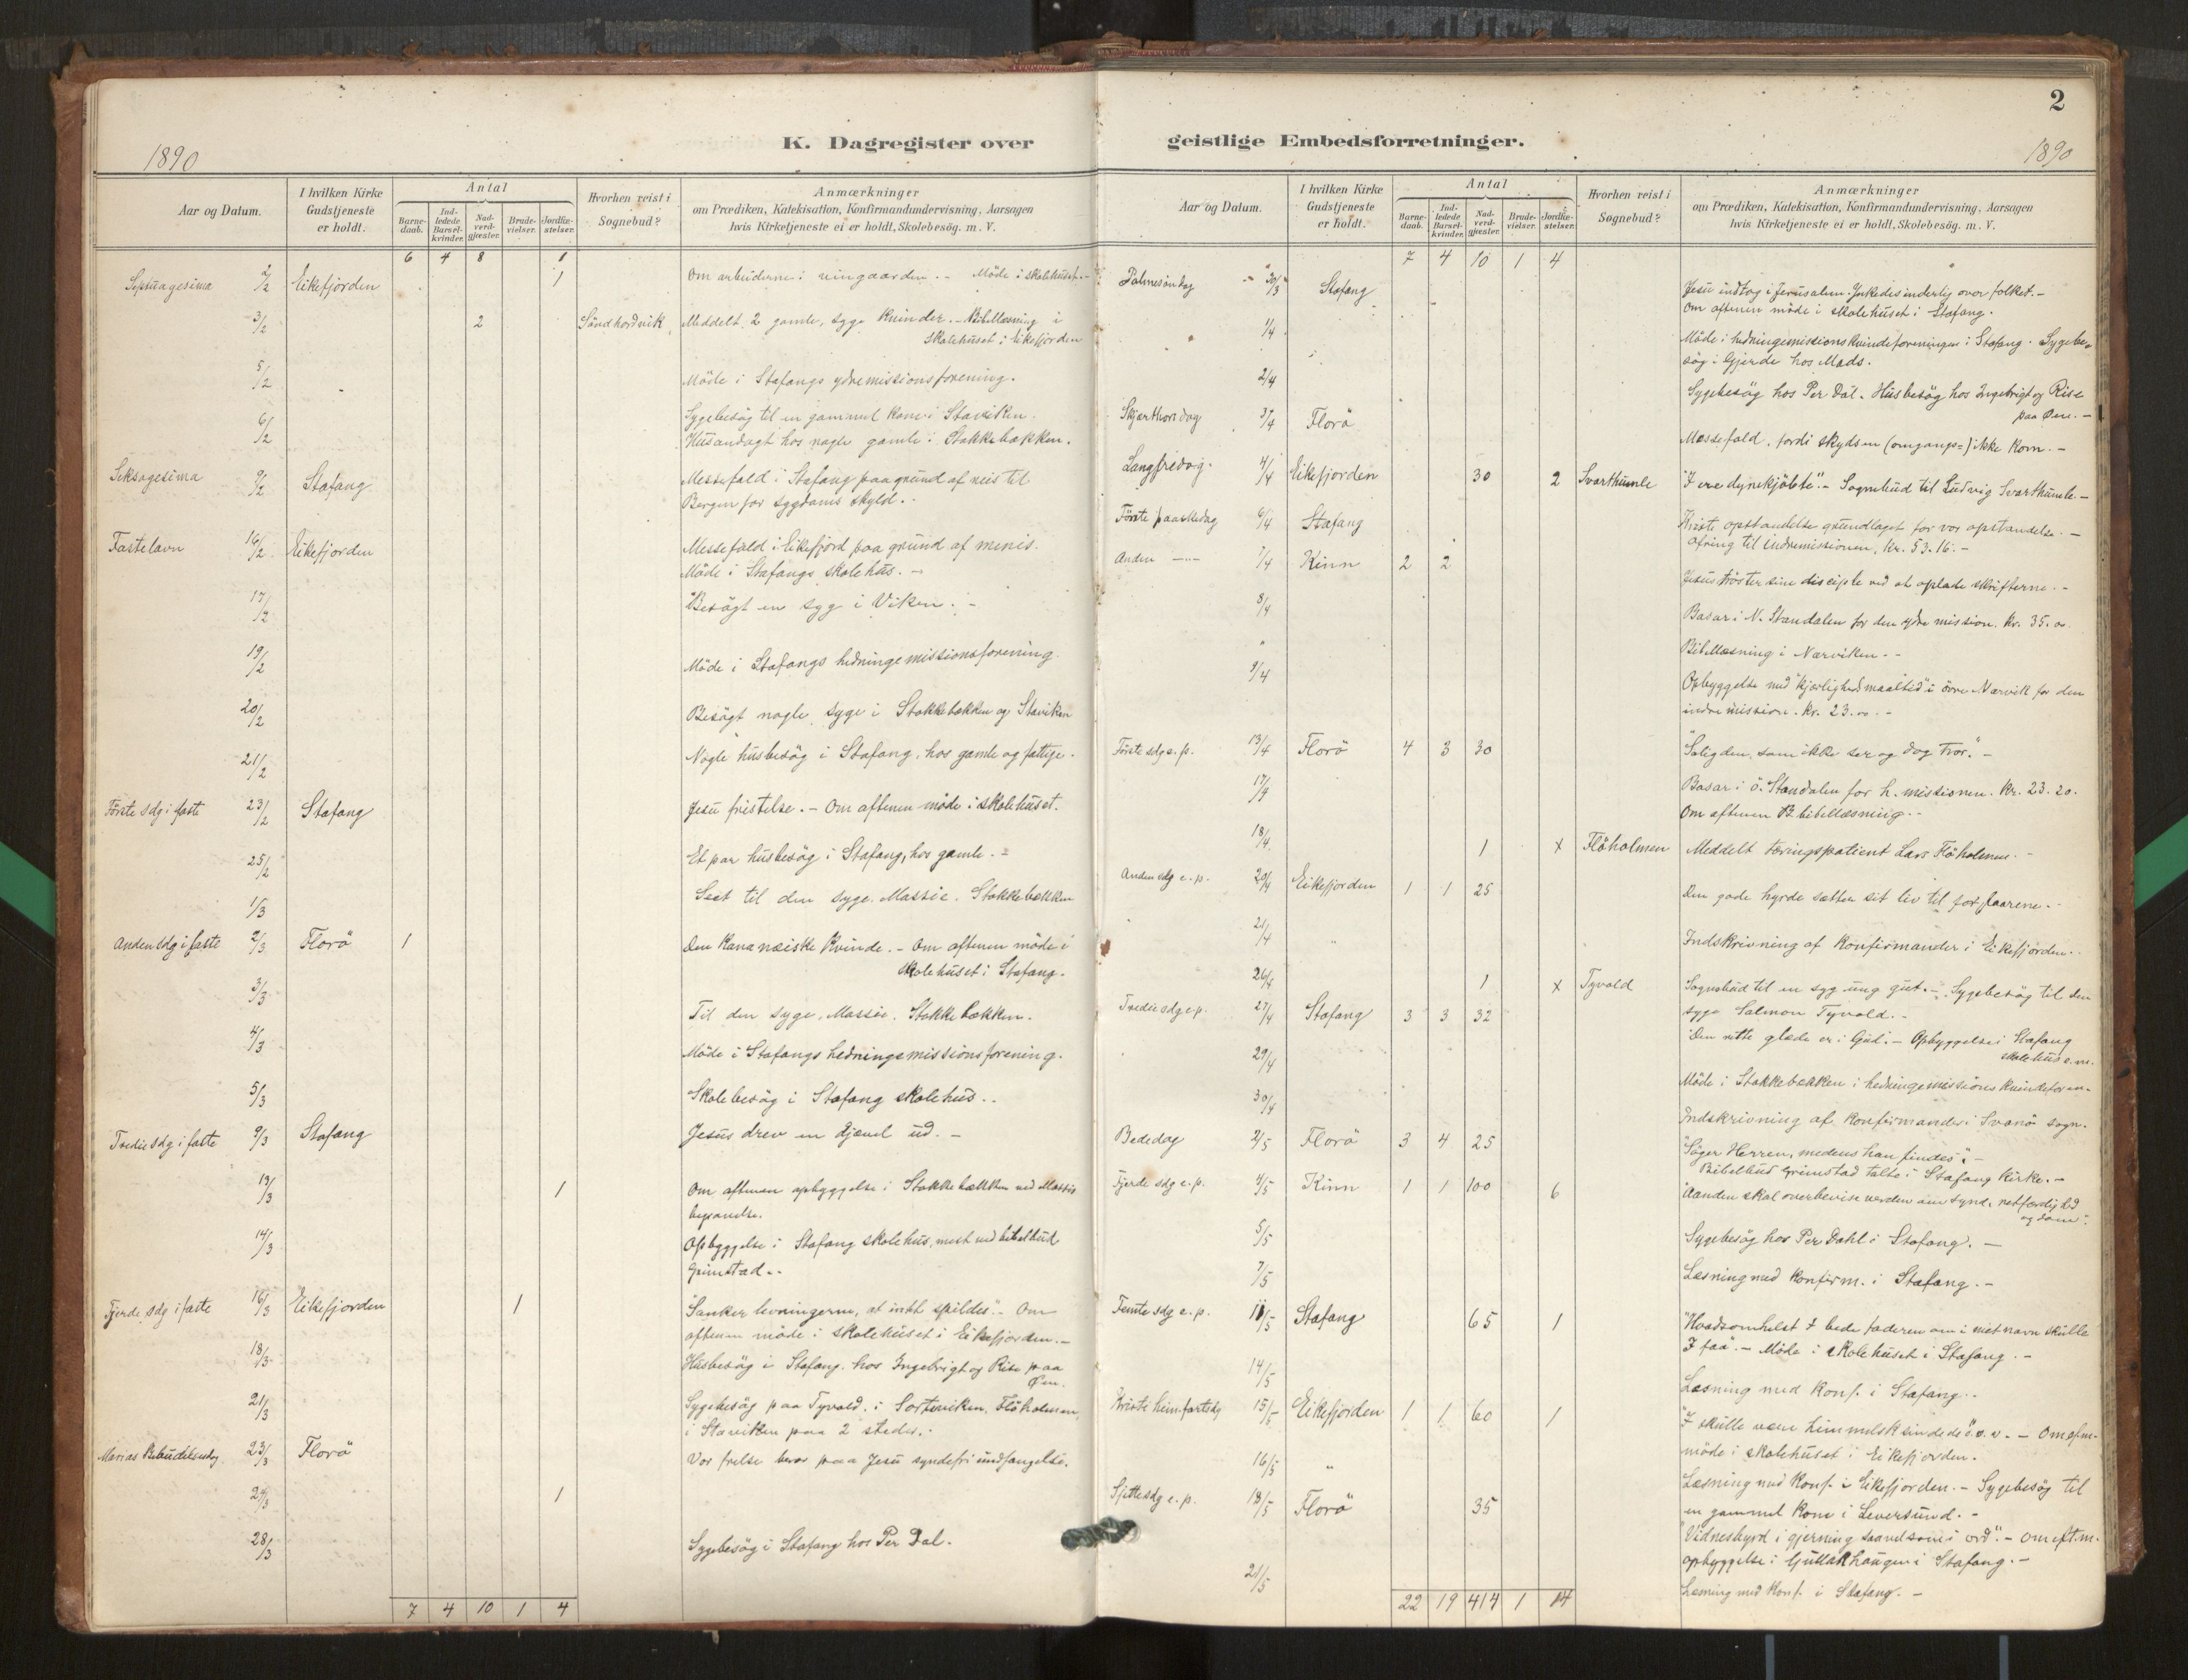 2
K. Dagregister over geistlige Embedsforretninger.
1890
1890
Aar og Datum.
I hvilken Kirke Gudstjeneste er holdt.
Antal
Barne-daab.
Ind-ledede Barsel-kvinder.
Nad-verd-gjæster.
Brude-vielser.
Jordfæ-stelser.
Hvorhen reist i Sognebud?
Anmærkninger
om Prædiken, Katekisation, Konfirmandundervisning, Aarsagen
hvis Kirketjeneste ei er holdt, Skolebesög. m. V.
6 4 8 1
Septuagesima 2/2 Eikefjorden 1 Om arbeiderne i vingaarden. - Möde i skolehuset. -
3/2 2 Söndhordvik Meddelt 2 gamle, syge kvinder. - Bibellæsning i
skolehuset i Eikefjorden
5/2 Möde i Stafangs ydremissionsforening.
6/2 Sygebesög til en gammel kone i Staviken.
Husandagt hos nogle gamle i Stokkebækken.
Seksagesima 9/2 Stafang Messefald i Stafang paa grund af reis til
Bergen for sygdoms skyld. -
Fastelavn 16/2 Eikefjorden Messefald i Eikefjord paa grund af menis.
Möde i Stafangs skolehus. -
17/2 Besögt en syg i Viken. -
19/2 Möde i Stafangs hedningemissionsforening.
20/2 Besögt nogle syge i Stokkebækken og Staviken
21/2 Nogle husbesög i Stafang, hos gamle og fattige.
Förste sdg i faste 23/2 Stafang Jesu fristelse. - Om aftenen möde i skolehuset.
25/2 Et par husbesög i Stafang, hos gamle. -
1/3 Seet til den syge. Massie. Stokkebækken
Anden sdg i faste 2/3 Florö 1 Den kananæiske kvinde. - Om aftenen möde i
skolehuset i Stafang.
3/3 Til den syge, Massie. Stokkebækken.
4/3 Möde i Stafangs hedningemissionsforening.
5/3 Skolebesög i Stafang skolehus. -
Tredie sdg i faste 9/3 Stafang Jesus drev en djævel ud. -
13/3 1 Om aftenen opbyggelse i Stokkebækken ved Massies
begravelse.
14/3 Opbyggelse i Stafang skolehus, mest ved bibelbud
Grimstad. -
Fjerde sdg i faste 16/3 Eikefjorden 1 "Sanker levningerne, at intet spildes". - Om
aftenen möde i skolehuset i Eikefjorden. -
18/3 Husbesög i Stafang. hos Ingebrigt og Rise paa
Öen.
21/3 Sygebesög paa Tyvold, i Sorteviken, Flöholmen,
i Staviken paa 2 steder. -
Marias Bebudelsesdag 23/3 Florö Vor frelse beror paa Jesu syndefri undfangelse.
24/3 1
28/3 Sygebesög i Stafang hos Per Dal.
7 4 10 1 4
Aar og Datum.
I hvilken Kirke Gudstjeneste er holdt.
Antal
Barne-daab.
Ind-ledede Barsel-kvinder.
Nad-verd-gjæster.
Brude-vielser.
Jordfæ-stelser.
Hvorhen reist i Sognebud?
Anmærkninger
om Prædiken, Katekisation, Konfirmandundervisning, Aarsagen
hvis Kirketjeneste ei er holdt, Skolebesög. m. V.
7 4 10 1 4
Palmesöndag 30/3 Stafang Jesu indtog i Jerusalem. Ynkedes inderlig over folket. -
Om aftenen möde i skolehuset i Stafang.
1/4 Möde i hedningemissionskvindeforeningen i Stafang. Sygebe-
sög i Gjerde hos Mads.
2/4 Sygebesög hos Per Dal. Husbesög hos Ingebrigt og Rise
paa Öen. -
Skjærthorsdag 3/4 Florö Messefald, fordi skydsen (omgangs-) ikke kom. -
Langfredag. 4/4 Eikefjorden 30 2 Svarthumle "I ere dyrekjöbte". - Sognebud til Ludvig Svarthumle. -
Förste paaskedag 6/4 Stafang Kristi opstandelse grundlaget for vor opstandelse. -
Ofring til indremissionen, kr. 53.16. -
Anden -"- 7/4 Kinn 2 2 Jesus tröster sine disciple ved at oplade skrifterne. -
8/4 Basar i N. Standalen for den ydre mission. kr. 35.00.
" Bibellæsning i Narviken. -
9/4 Opbyggelse med "kjærlighedsmaaltid" i övre Narvik for den
indre mission. kr. 23.00. -
Förste sdg e. p. 13/4 Florö 4 3 30 "Salig den, som ikke ser og dog tror." -
17/4 Basar i ö. Standalen for h. missionen. kr. 23.20.
Om aftenen bibellæsning. -
18/4 1 x Flöholmen Meddelt tæringspatient Lars Flöholmen. -
Anden sdg e. p. 20/4 Eikefjorden 1 1 25 Den gode hyrde sætter sit liv til for faarene. -
21/4 " Indskrivning af konfirmander i Eikefjorden. -
26/4 1 x Tyvold Sognebud til en syg ung gut. - Sygebesög til den
syge Salmon Tyvold. -
Tredie sdg e. p. 27/4 Stafang 3 3 32 Den rette glæde er i Gud. - Opbyggelse i Stafang
skolehus e. m.
29/4 Möde i Stokkebækken i hedningemissionskvindeforen-
30/4 Indskrivning af konfirmander i Svanö sogn.
Bededag 2/5 Florö 3 4 25 "Söger Herren, medens han findes". -
Bibelbud Grimstad talte i Stafang kirke. -
Fjerde sdg e. p. 4/5 Kinn 1 1 100 6 "Aanden skal overbevise verden om synd, retfærdighed
og dom".
5/5 Sygebesög hos Per Dahl i Stafang. -
7/5 Læsning med konfirm. i Stafang. -
Femte sdg e. p. 11/5 Stafang 65 1 "Hvadsomhelst I bede faderen om i mit navn skulle
I faa". - Möde i skolehuset i Stafang. -
14/5 Læsning med konf. i Stafang. -
Kristi himmelfartsdg 15/5 Eikefjorden 1 1 60 1 "I skulle være himmelsksindede" o. v. - Om efm.
möde i skolehuset i Eikefjorden.
16/5 " Læsning med konf. i Eikefjorden. - Sygebesög til
en gammel kone i Leversund. -
Sjette sdg e. p. 18/5 Florö 35 "Vidnesbyrd i gjerning saavelsom i ord". - Om eft.m.
opbyggelse i Gullakhaugen i Stafang. -
21/5 Læsning med konf. i Stafang. -
22 19 414 1 14